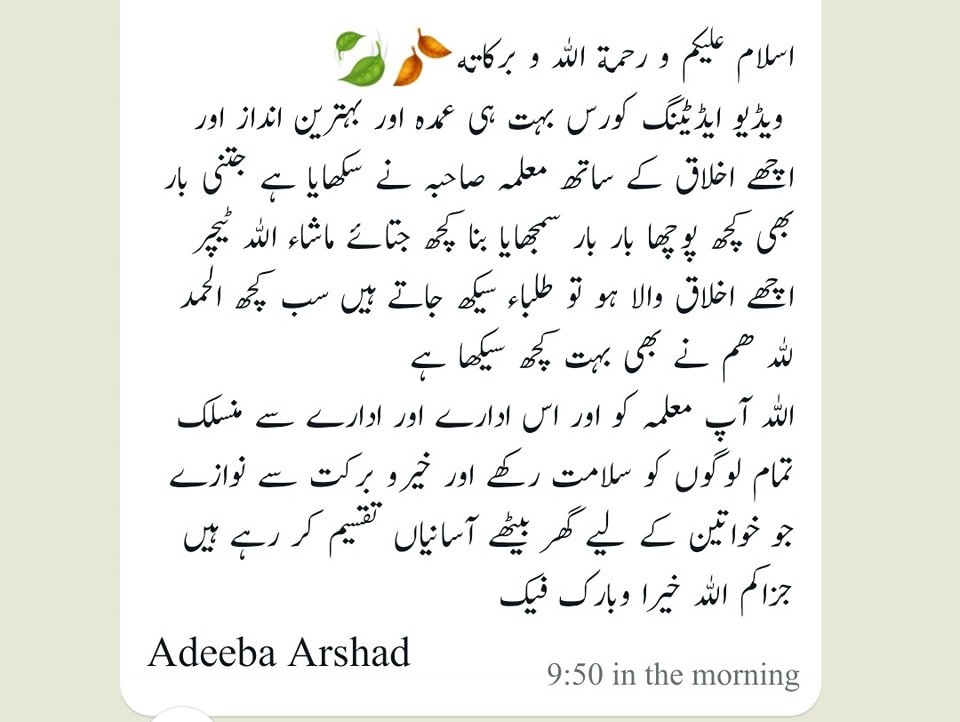 اسلام علیکم و رحمۃ اللہ و برکاتہ 🍂🍃
ویڈیو ایڈیٹنگ کورس بہت ہی عمدہ اور بہترین انداز اور
اچھے اخلاق کے ساتھ معلمہ صاحبہ نے سکھایا ہے جتنی بار
بھی کچھ پوچھا بار بار سمجھایا بنا کچھ جتائے ماشاء اللہ ٹیچر
اچھے اخلاق والا ہو تو طلباء سیکھ جاتے ہیں سب کچھ الحمد
للہ ھم نے بھی بہت کچھ سیکھا ہے
اللہ آپ معلمہ کو اور اس ادارے اور ادارے سے منسلک
تمام لوگوں کو سلامت رکھے اور خیر و برکت سے نوازے
جو خواتین کے لیے گھر بیٹھے آسانیاں تقسیم کر رہے ہیں
جزاکم اللہ خیرا وبارک فیک
Adeeba Arshad
9:50 in the morning